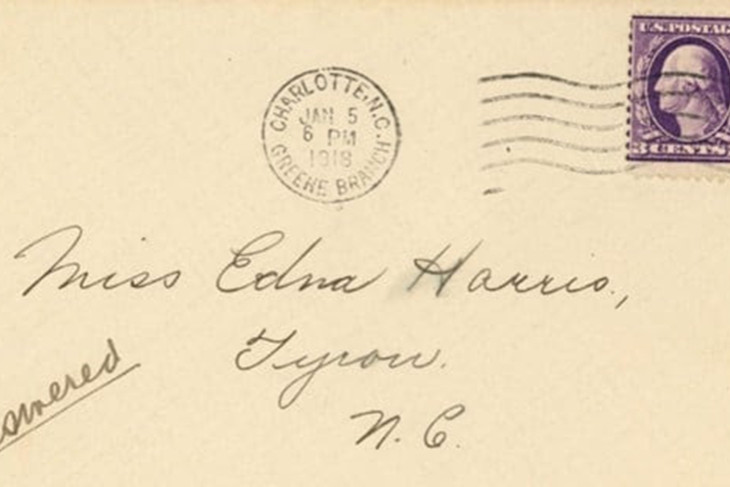 U.S. POSTAGE
3 CENTS 3
CHARLOTTE, N.C.
JAN 5
6 PM
1918
GREENE BRANCH
Miss Edna Harris,
Tyron.
N. C.